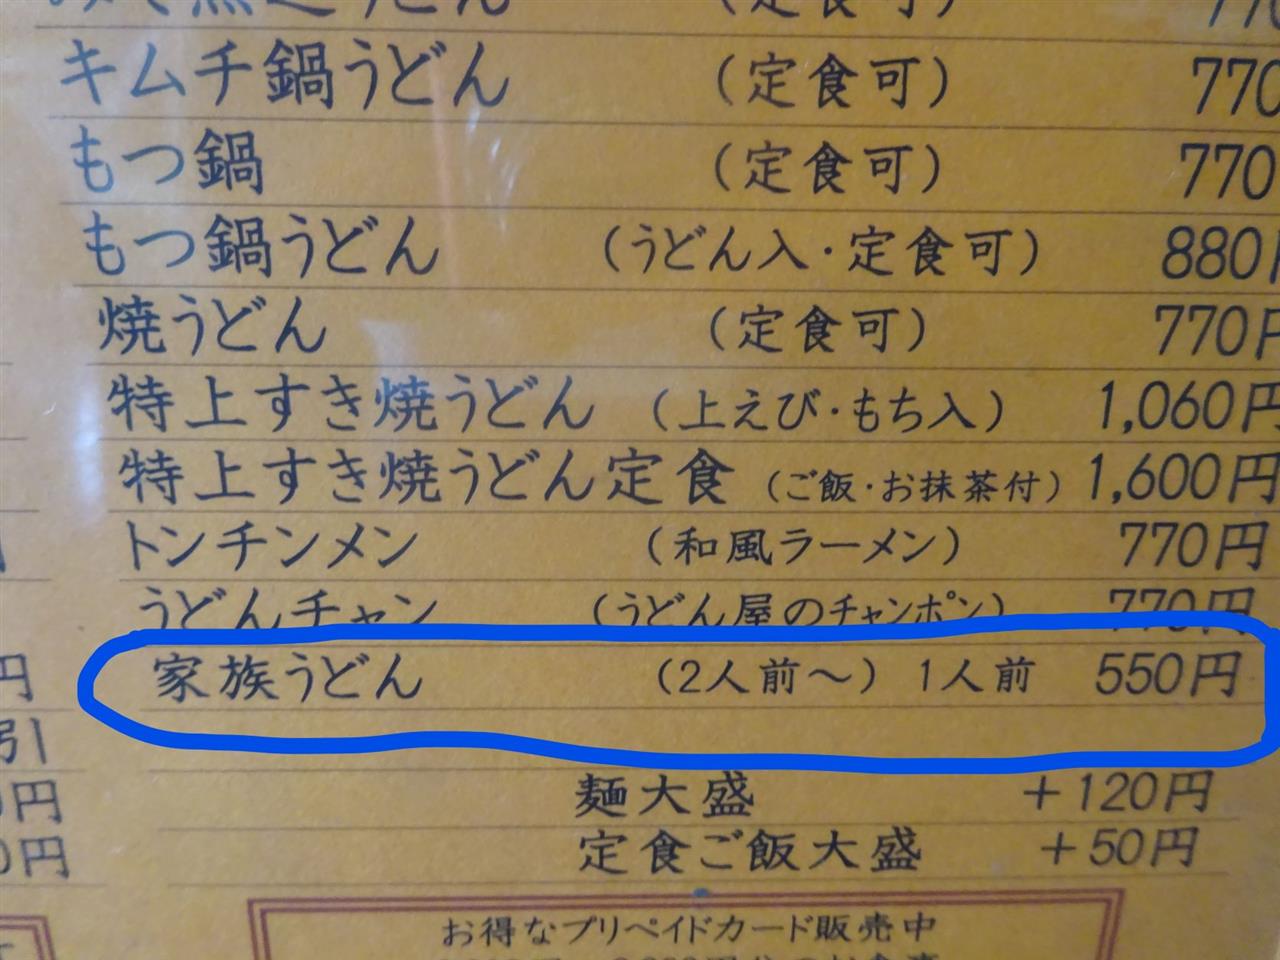 うどん (定食可) 770
キムチ鍋うどん (定食可) 770
もつ鍋 (定食可) 770
もつ鍋うどん (うどん入・定食可) 880円
焼うどん (定食可) 770円
特上すき焼うどん (上えび・もち入) 1,060円
特上すき焼うどん定食 (ご飯・お抹茶付) 1,600円
トンチンメン (和風ラーメン) 770円
うどんチャン (うどん屋のチャンポン) 770円
円 家族うどん (2人前～) 1人前 550円
引
円 麺大盛 +120円
0円 定食ご飯大盛 +50円
お得なプリペイドカード販売中